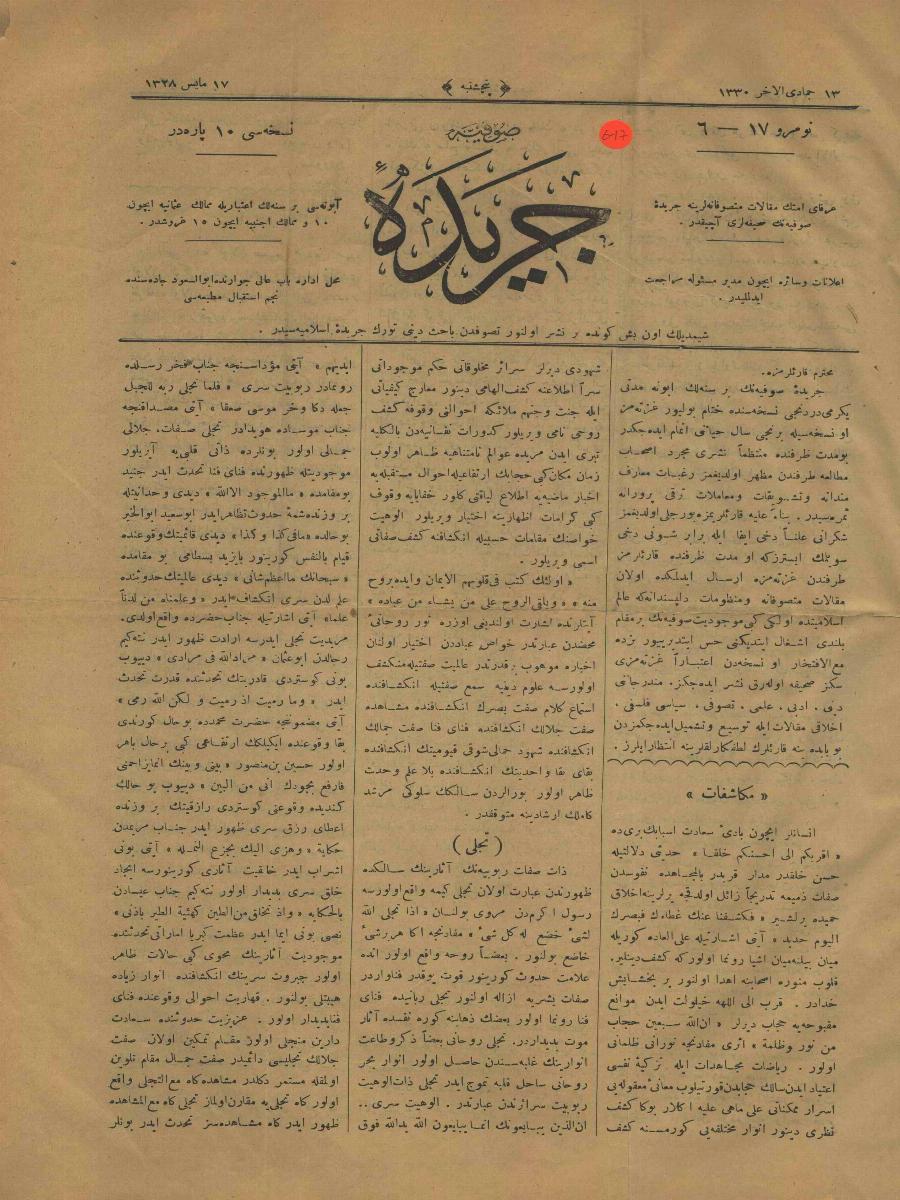 ١٣ جمادى الاخر ١٣٣٠
﴿ پنجشنبه ﴾
١٧ مايس ١٣٢٨
نومرو ١٧ — ٦
6-17
نسخه‌سى ١٠ پاره‌در
صوفيه
جريدۀ
عرفاى امتك مقالات متصوفانه‌لرينه جريدۀ
صوفيه‌نك صحيفه‌لرى آچيقدر .
اعلانات وسائره ايچون مدير مسئوله مراجعت
ايدلمليدر .
آبونه‌سى بر سنه‌لك اعتباريله ممالك عثمانيه ايچون
١٠ و ممالك اجنبيه ايچون ١٥ غروشدر .
محل اداره باب عالى جوارنده ابوالسعود جاده‌سنده
نجم استقبال مطبعه‌سى
شيمديلك اون بش كونده بر نشر اولنور تصوفدن باحث دينى تورك جريدۀ اسلاميه‌سيدر .
محترم قارئلرمزه .
جريدۀ صوفيه‌نك بر سنه‌لك ابونه مدتى
يكرمى دردنجى نسخه‌سنده ختام بوليور غزته‌مز
او نسخه‌سيله برنجى سال حياتى اتمام ايده‌جكدر
بومدت ظرفنده منتظماً نشرى مجرد اصحاب
مطالعه طرفندن مظهر اولديغمز رغبات معارف
مندانه وتشويقات ومعاملات ترقى پرورانه
ثمره‌سيدر . بناءً عليه قارئلريمزه بورجلى اولديغمز
شكرانى علناً دخى ايفا ايله برابر شونى دخى
سويلمك ايسترزكه او مدت ظرفنده قارئلرمز
طرفندن غزته‌مزه ارسال ايدلمكده اولان
مقالات متصوفانه ومنظومات دلپسندانه‌كه عالم
اسلاميتده اولكى كبى موجوديت صوفيه‌نك برمقام
بلندى اشغال ايتديكنى حس ايتديرييور بزده
مع‌الافتخار او نسخه‌دن اعتباراً غزته‌مزى
سكز صحيفه اوله‌رق نشر ايده‌جكز. مندرجاتى
دينى . ادبى . علمى . تصوفى . سياسى فلسفى .
اخلاقى مقالات ايله توسيع وتشميل ايده‌جكمزدن
بو بابده ينه قارئلرك لطفكارلقلرينه انتظار ايلرز .
« مكاشفات »
انسانلر ايچون بادئ سعادت اسبابك برى ده
« اقربكم الى احسنكم خلقا » حديثى دلالتيله
حسن خلقدر مدار قربدر بالمجاهده نفوسدن
صفات ذميمه تدريجاً زائل اولدقچه يرلرينه اخلاق
حميده يرلشير « فكشفنا عنك غطاءك فبصرك
اليوم حديد » آيتى اشارتيله على‌العاده كوريله
ميان بيلنه‌ميان اشيا رونما اولوركه كشف دينلير.
قلوب منوره اصحابنه اهدا اولنور بر بخشايش
خدادر . قرب الى اللهه حيلولت ايدن موانع
مقبوحه‌يه حجاب ديرلر « ان‌الله سبعين حجاب
من نور وظلمة » اثرى مفادنجه نورانى ظلمانى
اولور . رياضات مجاهدات ايله تزكيۀ نفسى
اعتياد ايدن سالك حجابدن قورتيلوب معانئ معقوله‌يى
اسرار ممكناتى على ماهى عليه اكلار بوكا كشف
نظرى دينور انوار مختلفه‌يى كورمسنه كشف
شهودى ديرلر سرائر مخلوقاتى حكم موجوداتى
سراً اطلاعنه كشف الهامى دينور معارج كيفياتى
ايله جنت وجهنم ملائكه احوالى وقوفه كشف
روحى نامى ويريلور كدورات نفسانيه‌دن بالكليه
تبرى ايدن مريده عوالم نامتناهيه ظاهر اولوب
زمان مكان كبى حجابك ارتفاعيله احوال مستقبله‌يه
اخبار ماضيه‌يه اطلاع لياقتى كلور خفايايه وقوف
كبى كرامات اظهارينه اختيار ويريلور الوهيت
خواصنك مقامات حسبيله انكشافنه كشف صفاتى
اسمى ويريلور .
« اولئك كتب فى قلوبهم الايمان وايده بروح
منه » « ويلقى الروح على من يشاء من عباده »
آيتلرنده اشارت اولنديغى اوزره نور روحانى
محضدن عبارتدر خواص عبادن اختيار اولنان
اخياره موهوب برقدرتدر عالميت صفتيله منكشف
اولورسه علوم دينيه سمع صفتيله انكشافنده
استماع كلام صفت بصرك انكشافنده مشاهده
صفت جلالك انكشافنده فناى فنا صفت جمالك
انكشافنده شهود جمالى شوقى قيوميتك انكشافنده
بقاى بقا واحديتك انكشافنده بلا علم وحدت
ظاهر اولور بورالردن سالكك سلوكى مرشد
كاملك ارشادينه متوقفدر .
( تجلى )
ذات صفات ربوبيه‌نك آثارينك سالكده
ظهورندن عبارت اولان تجلى كيمه واقع اولورسه
رسول اكرم‌دن مروى بولنان « اذا تجلى الله
لشئ خضع له كل شئ » مفادنجه اكا هر برشئ
خاضع بولنور . بعضاً روحه واقع اولور انده
علامت حدوث كورينور قوت بوقدر فناواردر
صفات بشريه ازاله اولنور تجلى ربانيده فناى
فنا رونما اولور بعضك ذهابنه كوره نفسده آثار
موت بديداردر. تجلى روحانى بعضاً ذكر وطاعت
انوارينك غلبه‌سندن حاصل اولور انوار بحر
روحانى ساحل قلبه تموج ايدر تجلى ذات الوهيت
ربوبيت سرائرندن عبارتدر . الوهيت سرى . .
ان‌الذين يبايعونك انما يبايعون الله يدالله فوق
ايديهم » آيتى مؤداسنجه جناب فخر رسلده
رونمادر ربوبيت سرى « فلما تجلى ربه للجبل
جعله دكا وخر موسى صعقا » آيتى مصداقنجه
جناب موساده هويدادر تجلئ صفات، جلالى
جمالى اولور بونلرده ذاتى قلبى‌يه آيريلور
موجوديتله ظهورنده فناى فنا تحدث ايدر جنيد
بومقامده « مالموجود الاالله » ديدى وحدانيتله
بر وزنده شمۀ حدوث تظاهر ايدر ابوسعيد ابوالخير
بوحالده «مافى كذا و كذا» ديدى قائميتك وقوعنده
قيام بالنفس كورينور بايزيد بسطامى بو مقامده
« سبحانك مااعظم‌شانى » ديدى عالميتك حدوثنده
علم لدن سرى انكشاف ايدر « وعلمناه من لدنا
علما» آيتى اشارتيله جناب خضرده واقع اولدى.
مريديت تجلى ايدرسه ارادت ظهور ايدر نته‌كيم
رجالدن ابوعثمان « من‌ادالله فى مرادى » دييوب
بونى كوستردى قادريتك تحدثنده قدرت تحدث
ايدر « وما رميت اذ رميت و لكن الله رمى »
آيتى مضمونجه حضرت محمدده بوحال كورندى
بقا وقوعنده ايكيلكك ارتفاعى كبى برحال باهر
اولور حسين بن‌منصور « بينى وبينك انى‌ايزاحمنى
فارفع بجودك انى من البين » دييوب بو حالك
كنديده وقوعنى كوستردى رازقيتك بر وزنده
اعطاى رزق سرى ظهور ايدر جناب مريمدن
حكاية « وهزى اليك بجزع النخله » آيتى بونى
اشراب ايدر خالقيت آثارى كورينورسه ايجاد
خلق سرى بديدار اولور نته‌كيم جناب عيسادن
بالحكايه « واذ تخلق من‌الطين كهيئة الطير باذنى »
نصى بونى ايما ايدر عظمت كبريا اماراتى تحدثنده
موجوديت آثارينك محوى كبى حالات ظاهر
اولور جبروت سرينك انكشافنده انوار زياده
هيبتلى بولنور . قهاريت احوالى وقوعنده فناى
فنا بديدار اولور . عزيزيت حدوثنده سعادت
دارين منجلى اولور مقام تمكين اولان صفت
جلالك تجليسى دائميدر صفت جمال مقام تلوين
اولمقله مستمر دكلدر مشاهده كاه مع‌التجلى واقع
اولور كاه تجلى‌يه مقارن اولماز تجلى كاه مع المشاهده
ظهور ايدر كاه مشاهده‌سز تحدث ايدر بونلر